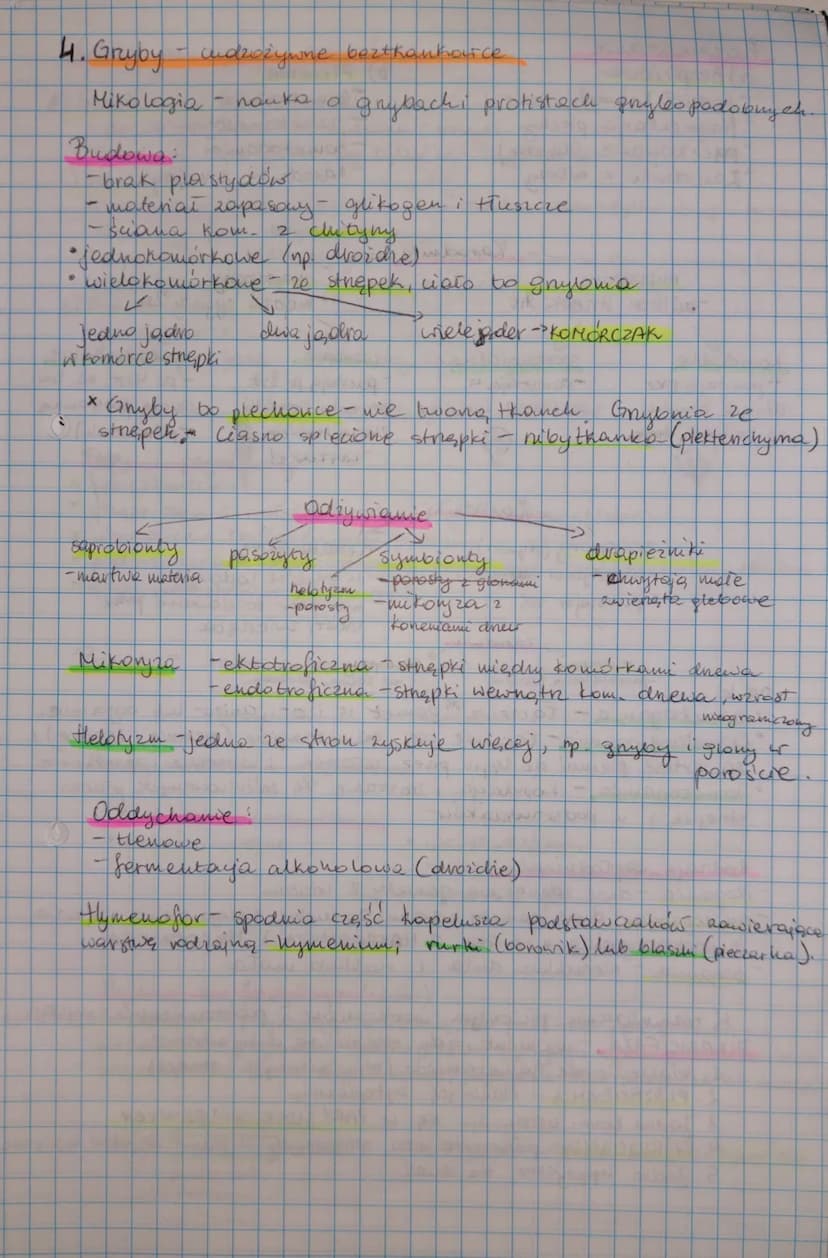 4. Grzyby - cudzożywne beztkankowce
Mikologia - nauka o grzybach i protistach grzybopodobnych.
Budowa:
- brak plastydów
- materiał zapasowy - glikogen i tłuszcze
- ściana kom. z chityny
• jednokomórkowe (np. drożdże)
• wielokomórkowe - ze strzępek, ciało to grzybnia
jedno jądro dwa jądra wiele jąder -> KOMÓRCZAK
w komórce strzępki
* Grzyby to plechowce - nie tworzą tkanek. Grzybnia ze
strzępek. - Ciasno splecione strzępki - nibytkanka (plektenchyma)
Odżywianie
saprobionty pasożyty symbionty drapieżniki
- martwa materia
helotyzm
- porosty
- porosty z glonami
- mikoryza z
korzeniami drzew
- chwytają małe
zwierzęta glebowe
Mikoryza - ektotroficzna - strzępki między komórkami drzewa
- endotroficzna - strzępki wewnątrz kom. drzewa, wzrost
nieograniczony
Helotyzm - jedna ze stron zyskuje więcej, np. grzyby i glony w
poroście.
Oddychanie:
- tlenowe
- fermentacja alkoholowa (drożdże)
Hymenofor - spodnia część kapelusza podstawczaków zawierająca
warstwę rodzajną - hymenium; rurki (borowik) lub blaszki (pieczarka).